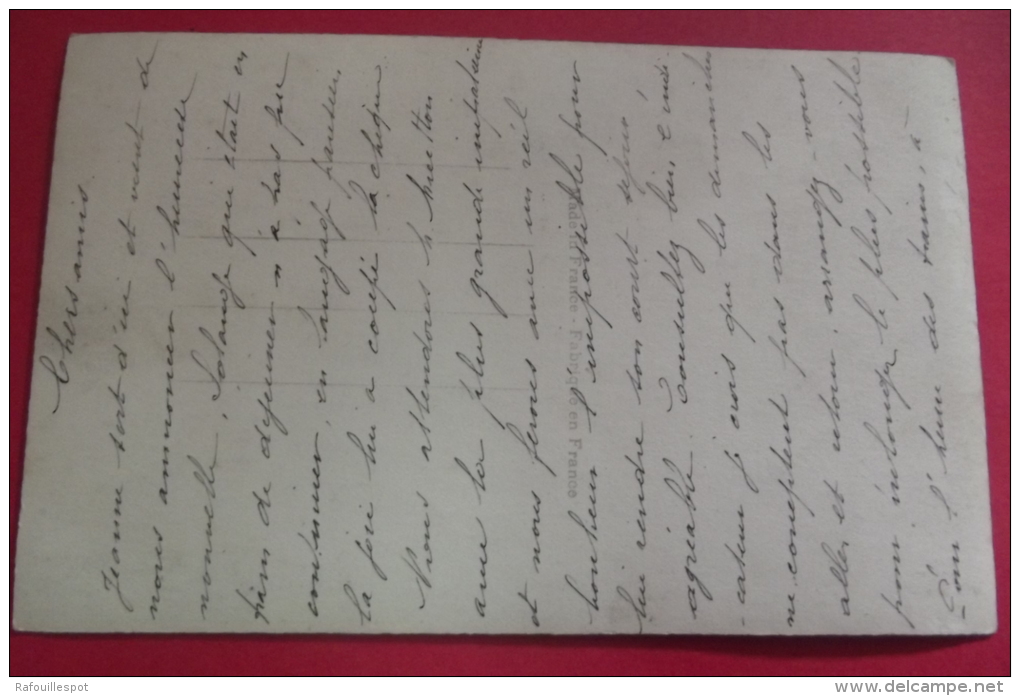 Chers amis
Jeanne sort d'ici et vient de
nous annoncer l'heureuse
nouvelle, Solange qui était en
train de dejeuner n'a pas pu
continuer, en langage parisien
la joie lui a coupé la chique.
Nous attendons h Milton
avec la plus grande impatience
et nous ferons avec un réel
bonheur l'impossible pour
lui rendre son court séjour
agréable. Consultez bien l'indi
-cateur je crois que les dimanches
ne comptent pas dans les
aller et retour, arrangez-vous
pour prolonger le plus possible
-Pour l'heure des trains, à-
Made in France - Fabriqué en France
Rafouillespot
www.delcampe.net